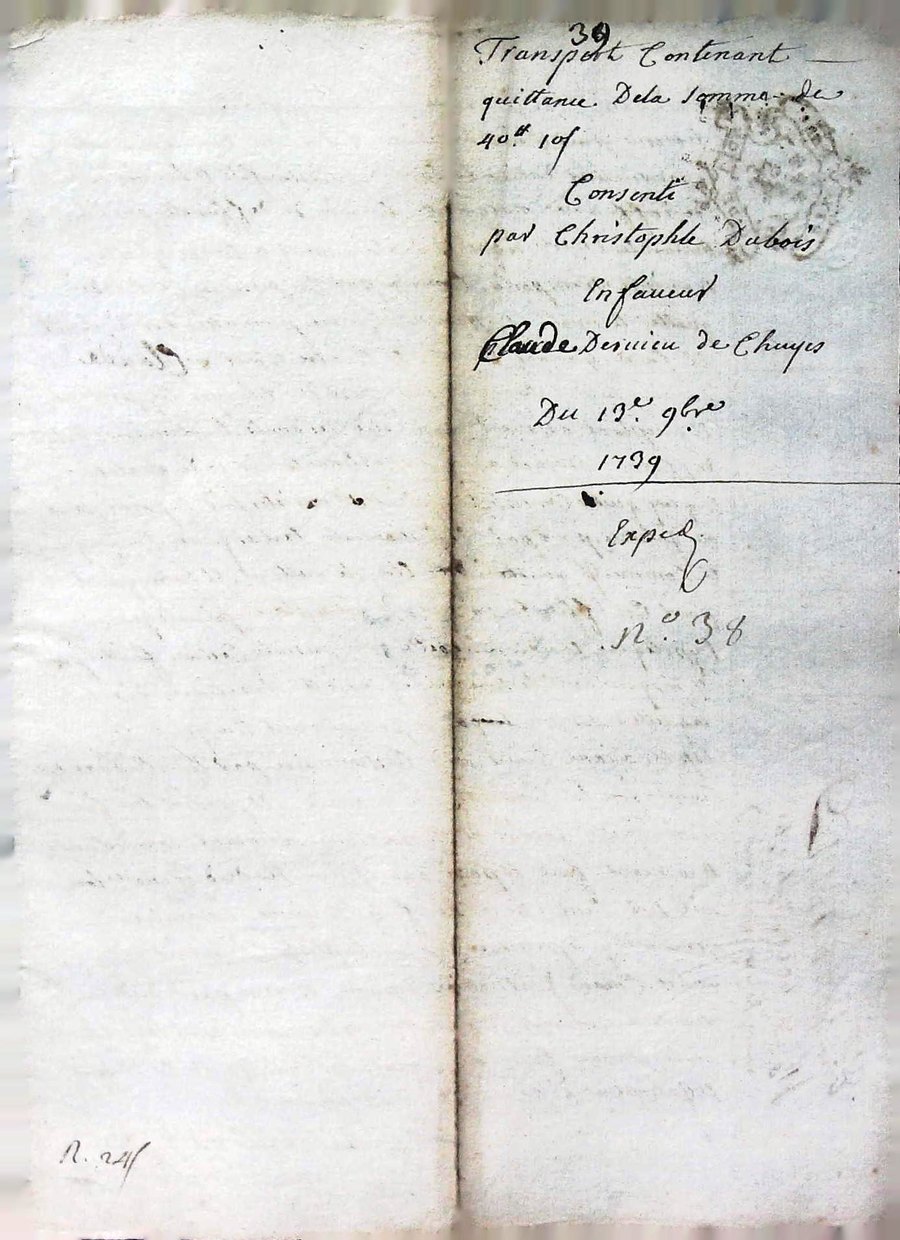 39
Transport Contenant
quittance Dela somme de
40.tt 10s
Consenti
par Christophle Dubois
En faveur
Claude Dervieu de Chuyes
Du 13e. 9bre
1739
Exped
N.o 38
R. 24s